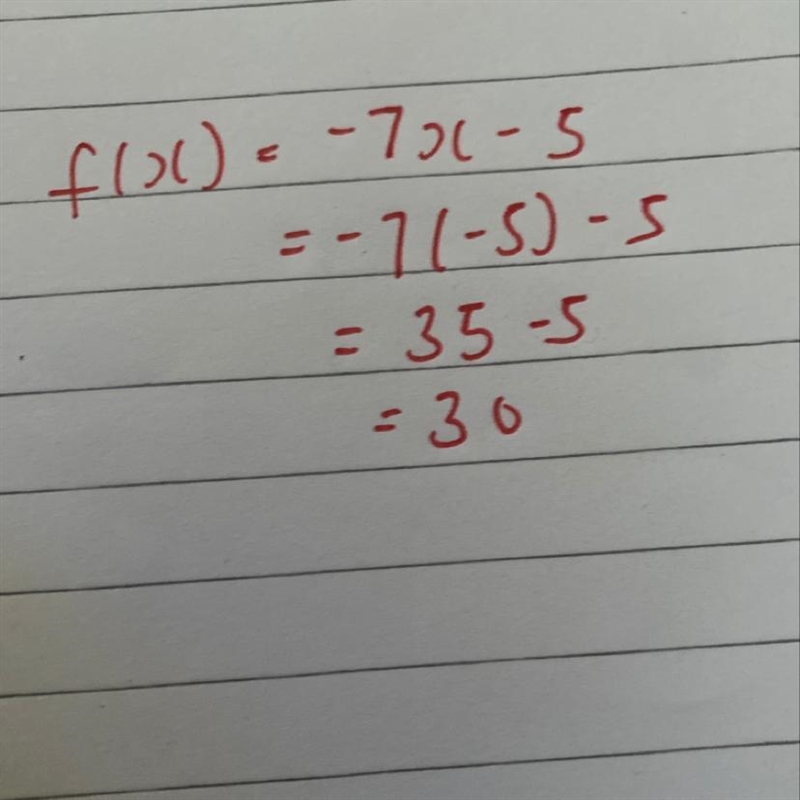 f(x) = -7x - 5
= -7(-5) - 5
= 35 - 5
= 30